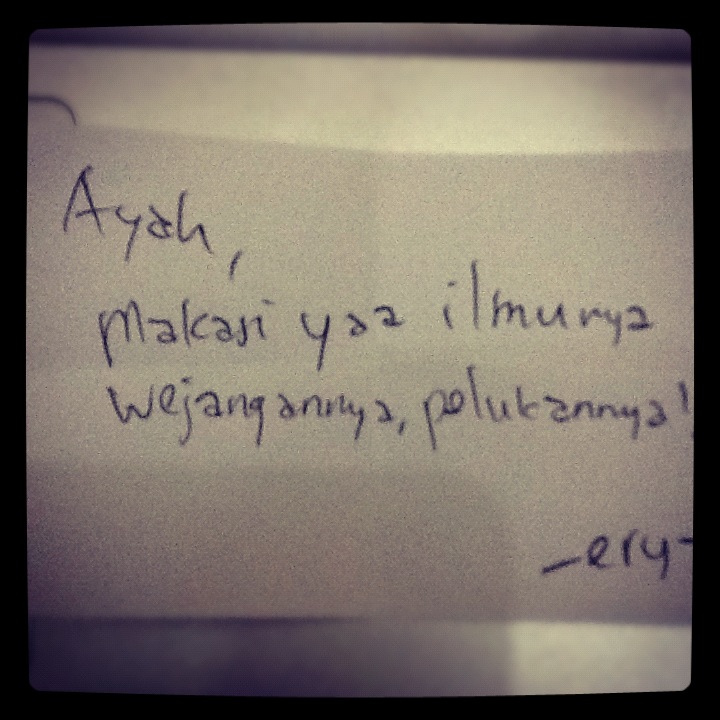 Ayah,
Makasi yaa ilmunya
wejangannya, pelukannya!
-ery-